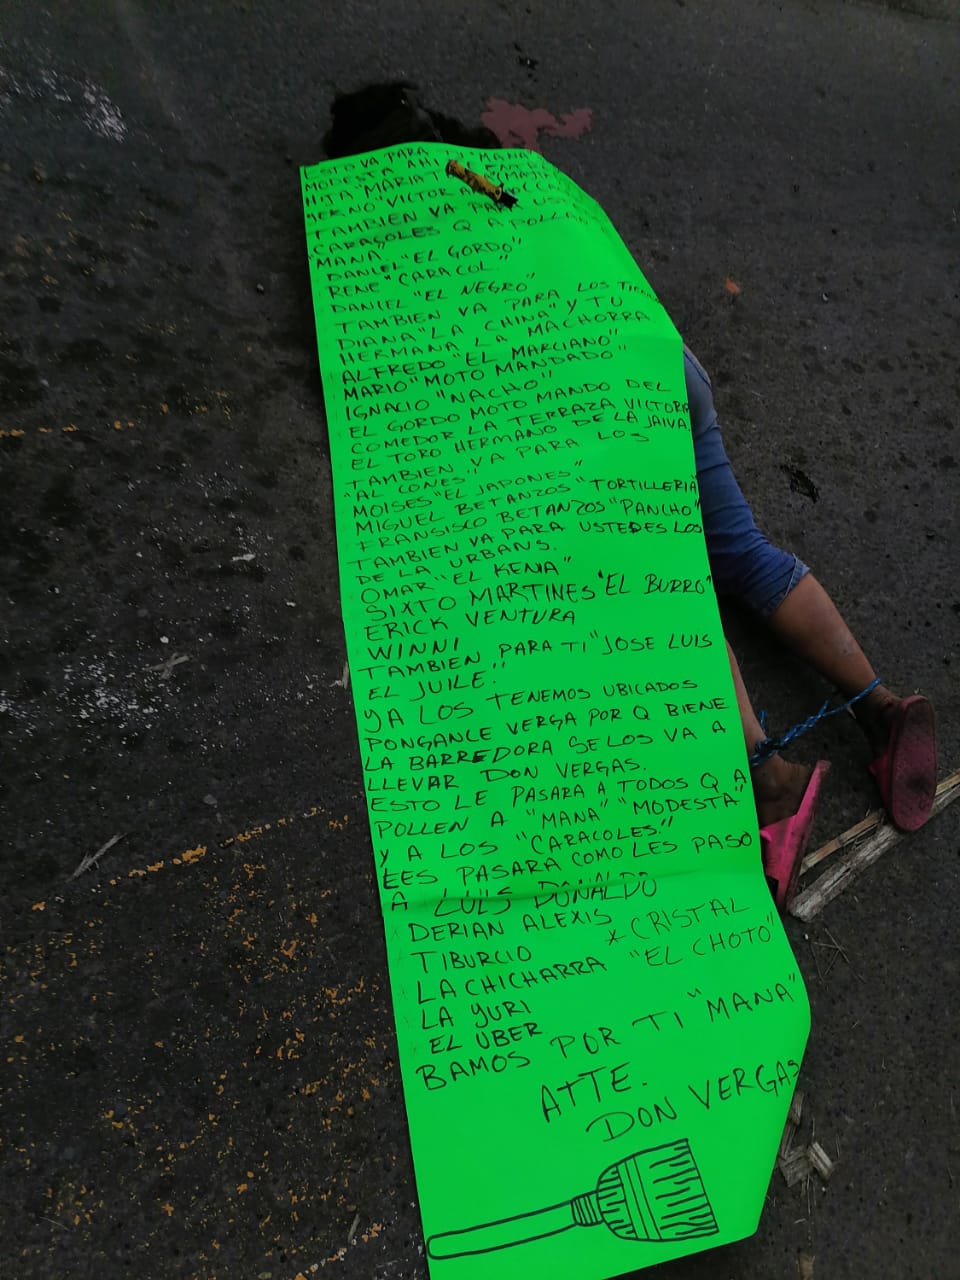 ESTO VA PARA TI "MANA"
MODESTA AHI
HIJA "MARIA
YERNO "VICTOR
TAMBIEN VA PARA
"CARACOLES Q APOLLAN
MANA
DANIEL "EL GORDO"
RENE "CARACOL."
DANIEL "EL NEGRO"
TAMBIEN VA PARA LOS
DIANA "LA CHINA" Y TU
HERMANA LA MACHORRA
ALFREDO "EL MARCIANO"
MARIO "MOTO MANDADO"
IGNACIO "NACHO"
EL GORDO MOTO MANDO DEL
COMEDOR LA TERRAZA VICTORIA
EL TORO HERMANO DE LA JAIVA
TAMBIEN VA PARA LOS
"AL CONES."
MOISES "EL JAPONES"
MIGUEL BETANZOS "TORTILLERIA
FRANSISCO BETANZOS "PANCHO"
TAMBIEN VA PARA USTEDES LOS
DE LA URBANS.
OMAR "EL KENIA"
SIXTO MARTINES "EL BURRO"
ERICK VENTURA
WINNI
TAMBIEN PARA TI "JOSE LUIS
EL JUILE."
YA LOS TENEMOS UBICADOS
PONGANCE VERGA POR Q BIENE
LA BARREDORA SE LOS VA A
LLEVAR DON VERGAS.
ESTO LE PASARA A TODOS Q A
POLLEN A "MANA" "MODESTA"
Y A LOS "CARACOLES."
EES PASARA COMO LES PASO
A LUIS DONALDO
DERIAN ALEXIS
TIBURCIO * CRISTAL
LA CHICHARRA "EL CHOTO"
LA YURI
EL UBER
BAMOS POR TI "MANA"
ATTE.
DON VERGAS